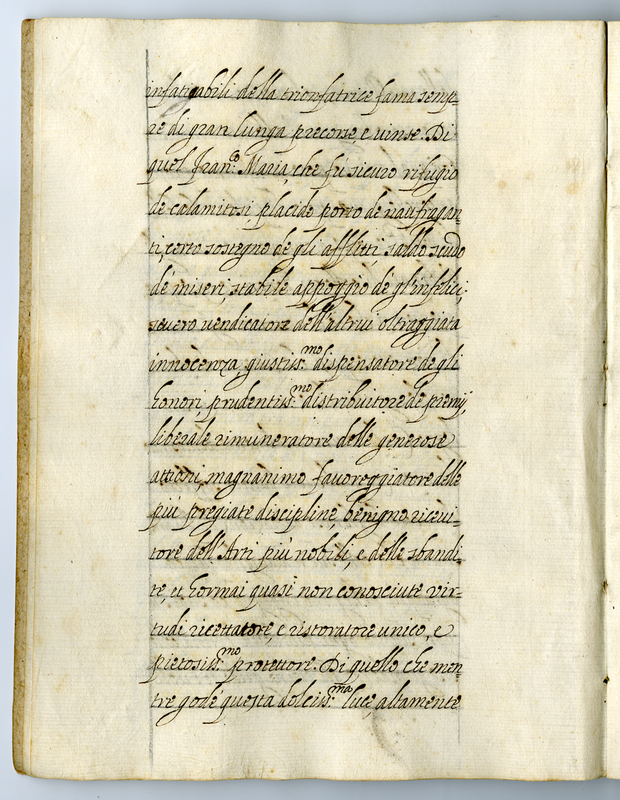 infatigabili della trionfatrice fama semp
re di gran lunga precorse, e vinse. Di
quel Fran.co Maria, che fù sicuro rifugio
de calamitosi, placido porto de naufragan-
ti, certo sostegno de gli afflitti, saldo scudo
de miseri, stabile appoggio de gl'infelici,
severo vendicatore dell'altrui oltraggiata
innocenza, giustiss.mo dispensatore de gli
honori, prudentiss.mo distribuitore de premij,
liberale rimuneratore delle generose
attioni, magnanimo favoreggiatore delle
più pregiate discipline, benigno ricevi-
tore dell'Arti più nobili, e delle sbandi-
te, et hormai quasi non conosciute vir-
tudi ricettatore, e ristoratore unico, e
pietosiss.mo protettore. Di quello che men-
tre godè questa dolciss.ma luce, altamente